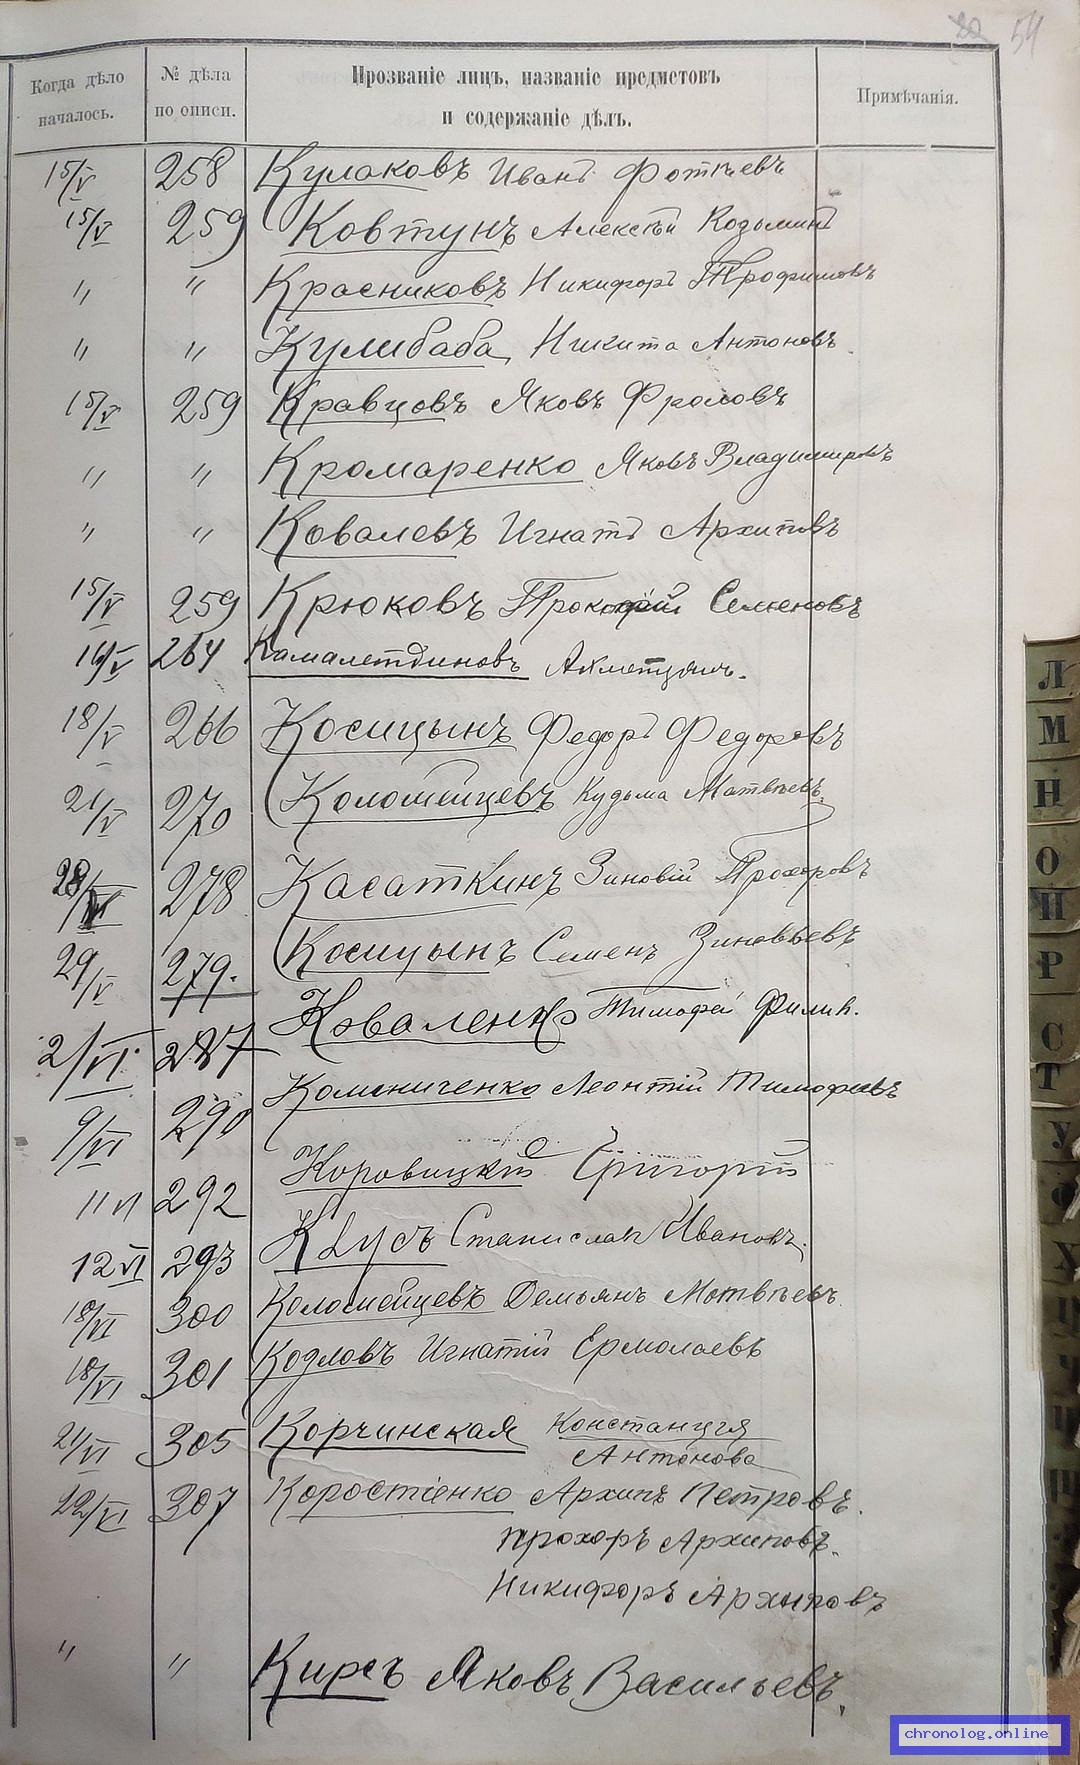 54
Когда дѣло началось.
№ дѣла по описи.
Прозваніе лицъ, названіе предметовъ и содержаніе дѣлъ.
Примѣчанія.
15/V 258 Кулаковъ Иванъ Фотіевъ
15/V 259 Ковтунъ Алексѣй Козьминъ
" " Красниковъ Никифоръ Трофимовъ
" " Кулибаба Никита Антоновъ
15/V 259 Кравцовъ Яковъ Фроловъ
" " Кромаренко Яковъ Владимировъ
" " Ковалевъ Игнатъ Архиповъ
15/V 259 Крюковъ Прокофій Семеновъ
16/V 264 Камалетдиновъ Ахметзянъ.
18/V 266 Косицынъ Федоръ Федоровъ
21/V 270 Коломейцевъ Кузьма Матвѣевъ.
28/ 278 Касаткинъ Зиновій Прохоровъ
29/V 279. Косицынъ Семенъ Зиновьевъ
2/VI 287 Коваленко Тимофей Филип.
9/VI 290 Колисниченко Леонтій Тимофеевъ
11 VI 292 Коровицкій Григорій
12 VI 293 Клусъ Станиславъ Ивановъ.
18/VI 300 Коломейцевъ Демьянъ Матвѣевъ.
18/VI 301 Козловъ Игнатій Ермолаевъ
21/VI 305 Корчинская Констанція
Антонова
22/VI 307 Коростіенко Архипъ Петровъ.
Прохоръ Архиповъ.
Никифоръ Архиповъ
" " Кирсъ Яковъ Васильевъ.
Л
М
Н
О
П
Р
С
Т
У
Ф
Х
Ц
Ч
Ш
chronolog.online